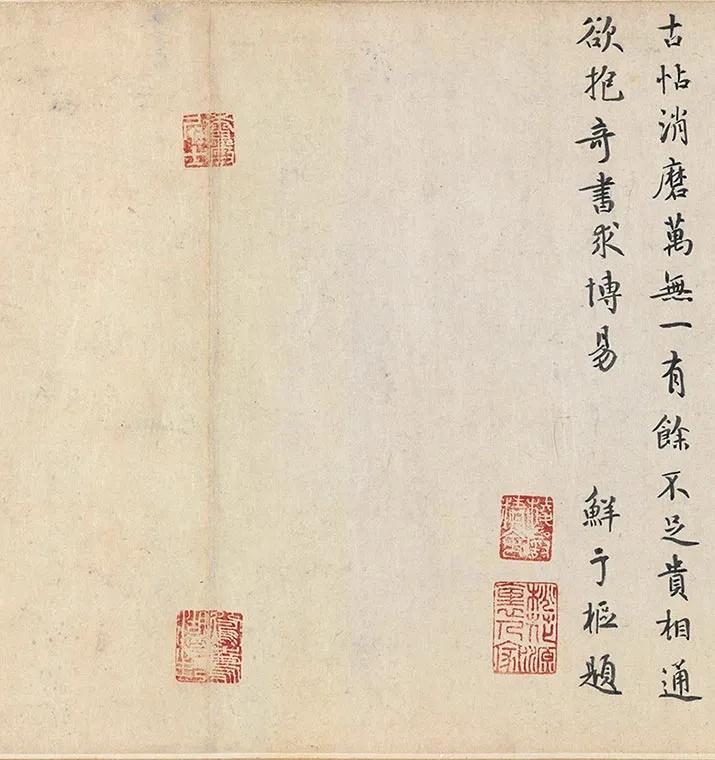 古帖消磨萬無一有餘不足貴相通
欲抱奇書求博易 鮮于樞題